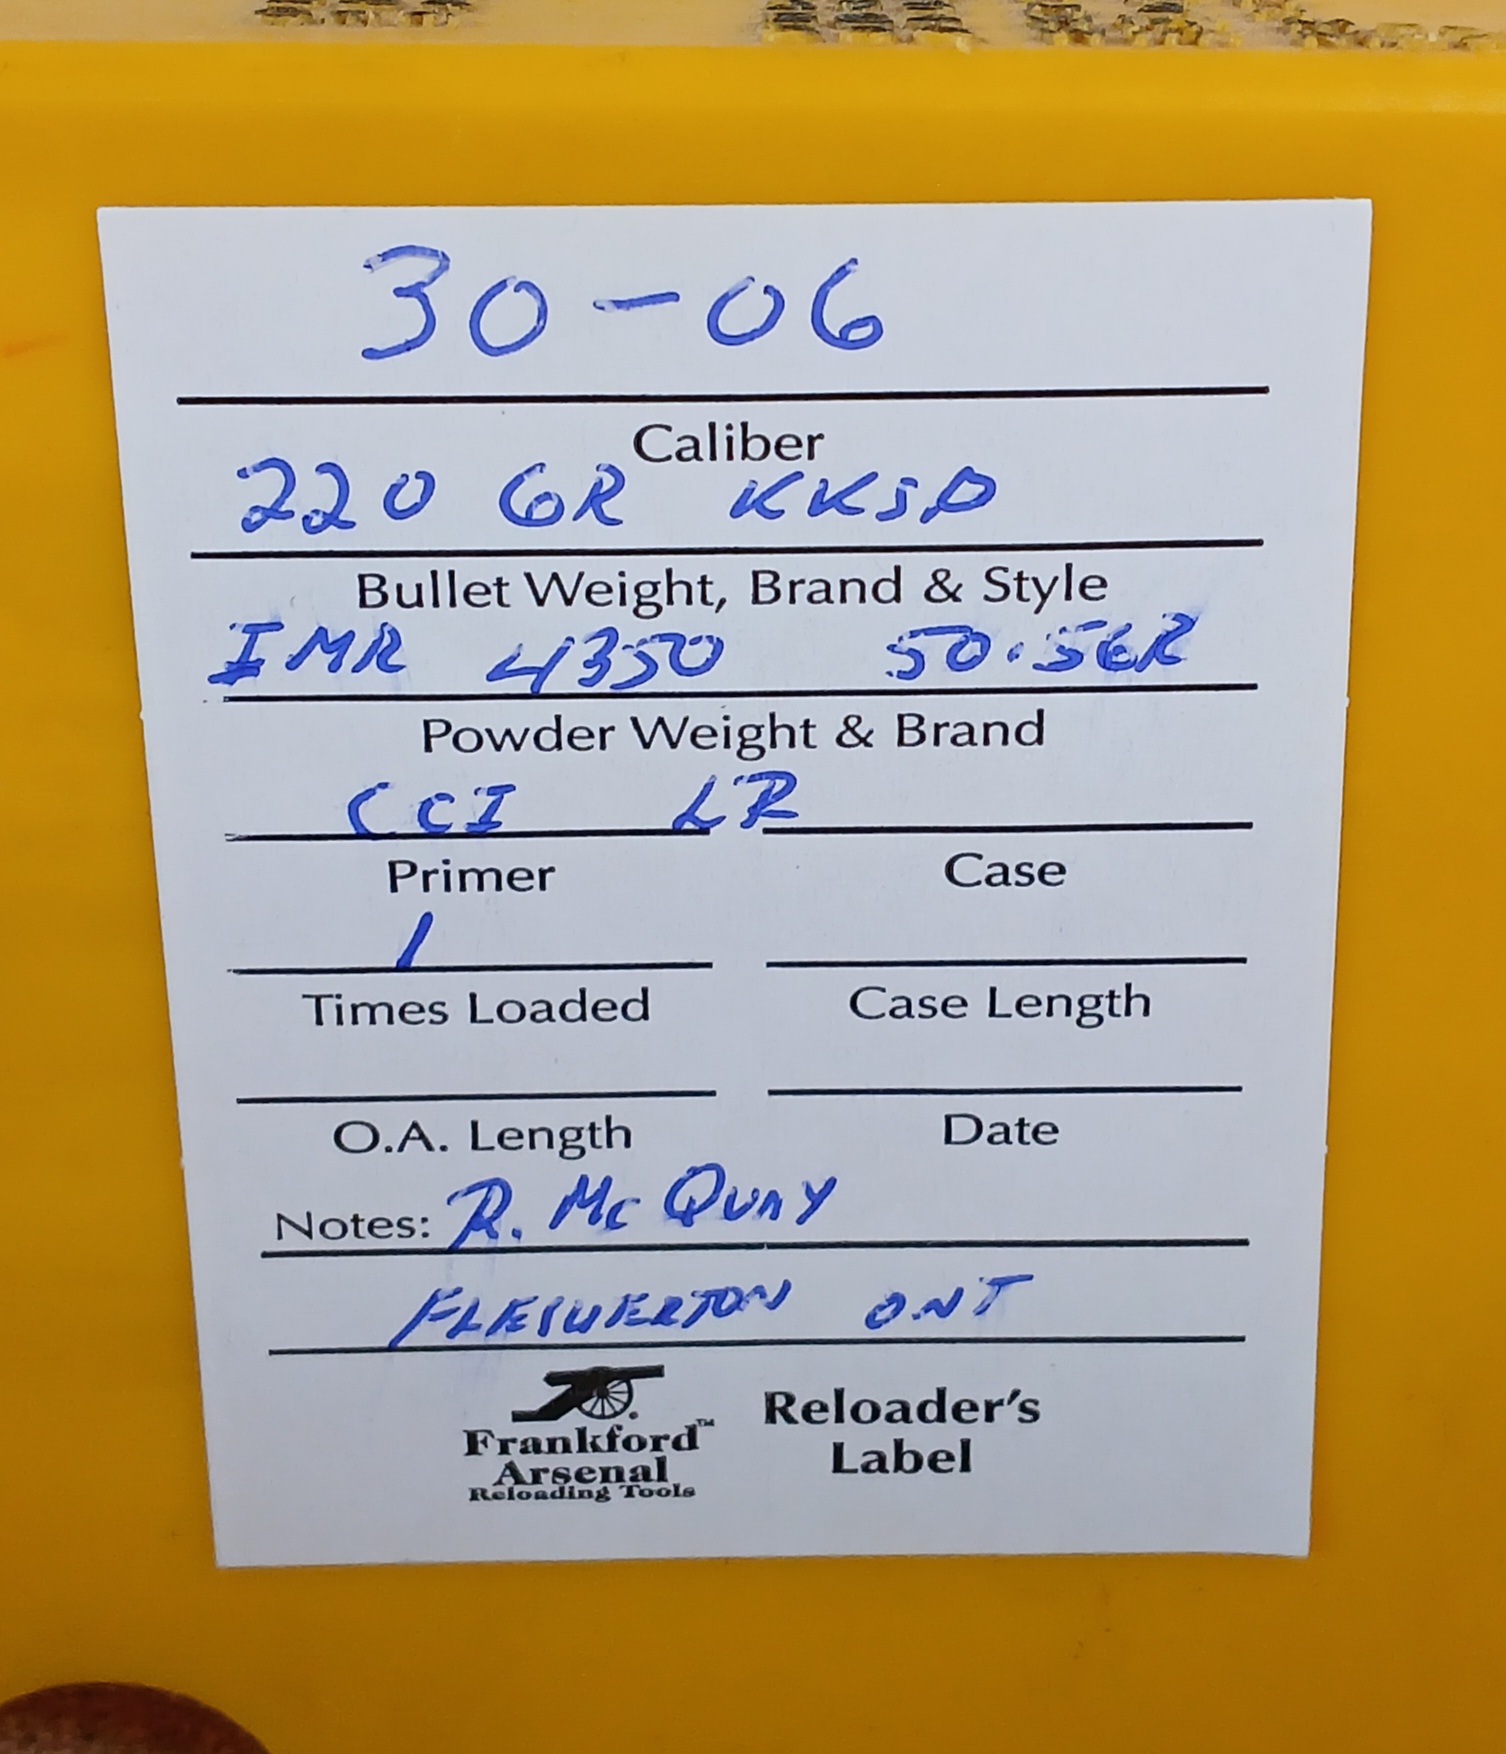 30-06
Caliber
220 GR KKSP
Bullet Weight, Brand & Style
IMR 4350 50.5GR
Powder Weight & Brand
CCI LR
Primer Case
1
Times Loaded Case Length
O.A. Length Date
Notes: R. McQuay
FLESHERTON ONT
Frankford™ Reloader's
Arsenal Label
Reloading Tools